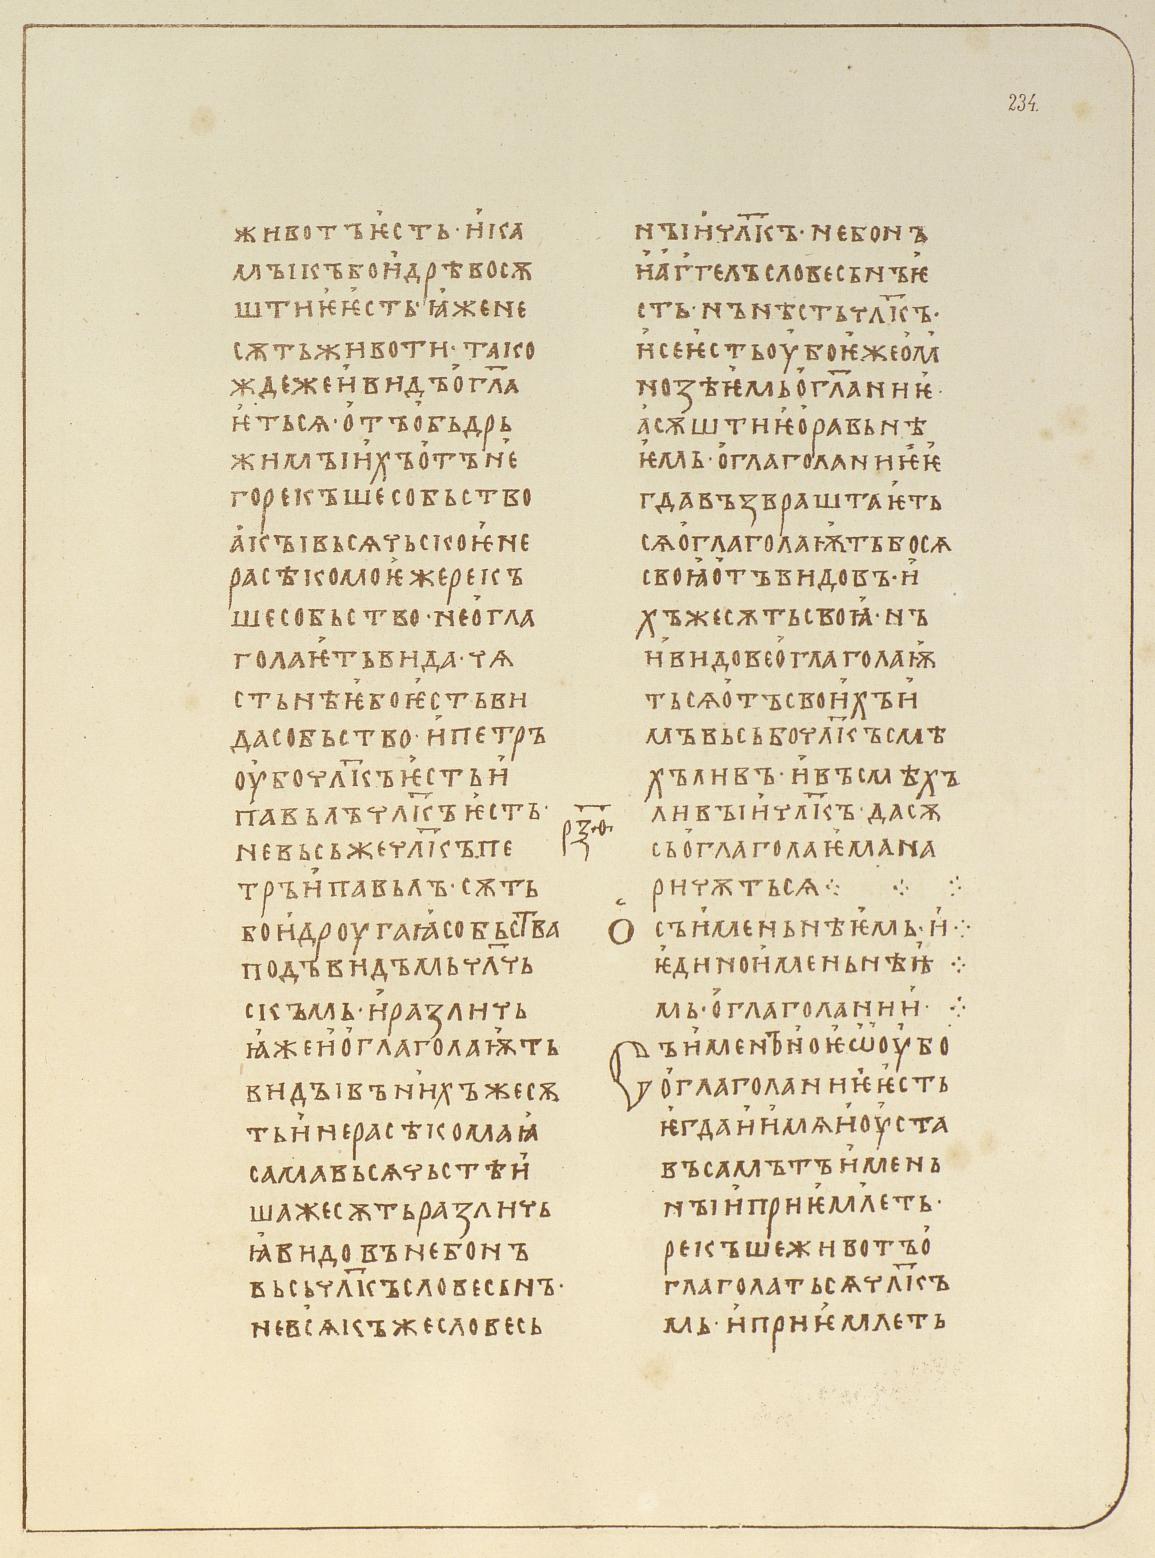 234.
животъѥсть·ика
мыкъбоидрѣвосѫ
штиѥѥсть·ꙗжене
сѫтьживоти·тако
ждежеивидъогл҃а
ѥтьсѧ·отъобьдрь
жимыихъотъне
горекъшесобьство
акывьсѧчьскоѥне
расѣкомоѥжерекъ
шесобьство·неогла
голаѥтьвида·чѧ
стьнѣѥбоѥстьви
дасобьство·ипетръ
оубочл҃къѥстьи
павьлъчл҃къѥсть·
невьсьжечл҃къпе
тръипавьлъ·сѫть
боидроугаꙗсобьства
подъвидъмьчл҃чь
скъмь·иразличь
ꙗжеиоглаголаѭть
видывънихъжесѫ
тьинерасѣкомаꙗ
самавьсѧчьстѣи
шажесѫтьразличь
ꙗвидовънебонъ
вьсьчл҃късловесьнъ·
невсѧкъжесловесь
ныичл҃къ·небонъ
иаггелъсловесьнъѥ
сть·нънѣстьчл҃къ·
исеѥстьоубоѥжеом
нозѣѥмьогл҃аниѥ·
асѫштиѥоравьнѣ
ѥмь·оглаголаниѥѥ
гдавъзвраштаѥть
сѧоглаголаѭтьбосѧ
своꙗотъвидовъ·и
хъжесѫтьсвоꙗ·нъ
ивидовеоглаголаѭ
тьсѧотъсвоихъи
мъвьсьбочл҃късмѣ
хъливъ·ивъсмѣхъ
ливыичл҃къ·дасѫ
сьоглаголаѥмана
ричѫтьсѧ⁘ ⁘ ⁘
р҃з҃ѳ
О съименьнѣѥмь·и⁘
ѥдиноименьнѣѥ ⁘
мь·оглаголании· ⁘
Съименьноѥѡоубо
оглаголаниѥѥсть
ѥгдаиимѧиоуста
въсамътъимень
ныиприѥмлеть·
рекъшеживотъо
глаголатьсѧчл҃къ
мь·иприѥмлеть